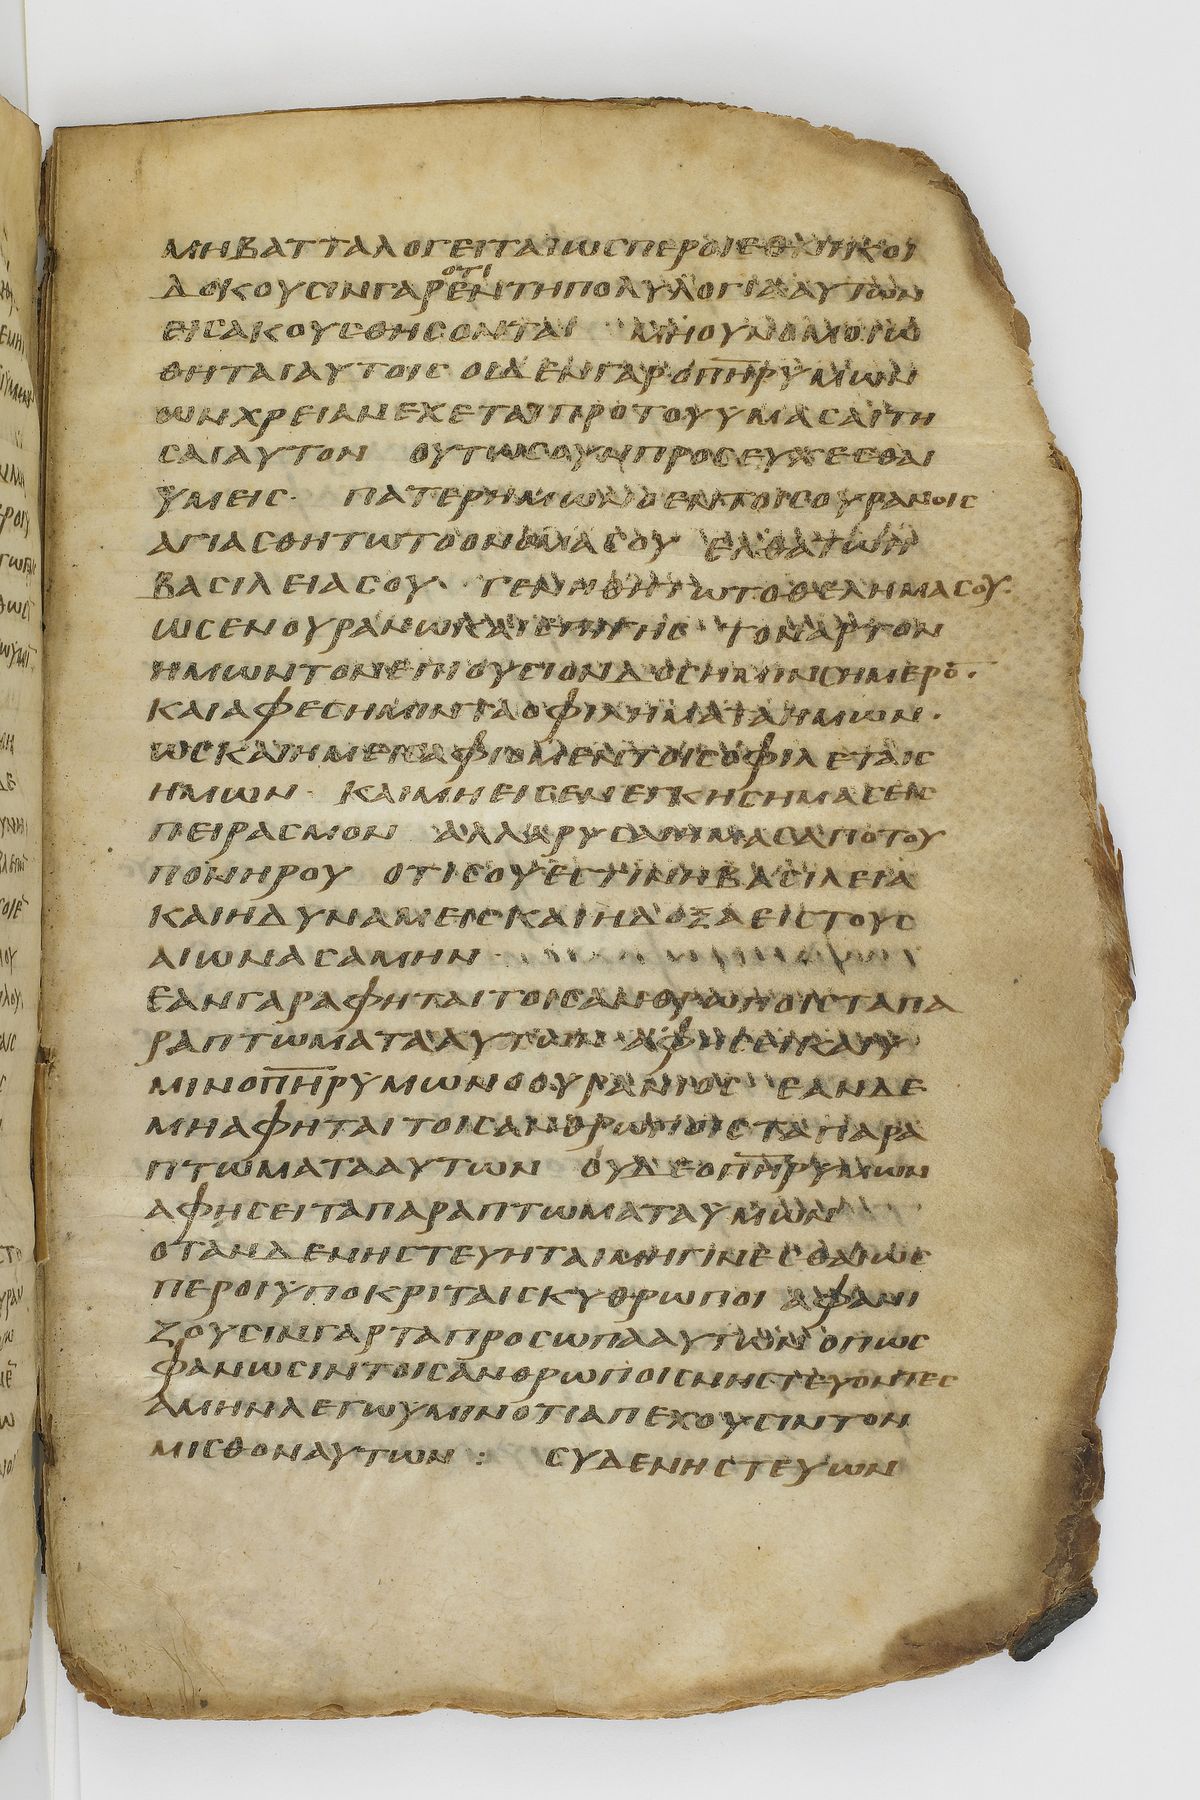 ΜΗΒΑΤΤΑΛΟΓΕΙΤΑΙΩCΠΕΡΟΙΕΘΝΙΚΟΙ
ΔΟΚΟΥCΙΝΓΑΡΟΤΙΕΝΤΗΠΟΛΥΛΟΓΙΑΑΥΤΩΝ
ΕΙCΑΚΟΥCΘΗCΟΝΤΑΙ ΜΗΟΥΝΟΜΟΙΩ
ΘΗΤΑΙΑΥΤΟΙC ΟΙΔΕΝΓΑΡΟΠΗΡΥΜΩΝ
ΩΝΧΡΕΙΑΝΕΧΕΤΑΙΠΡΟΤΟΥΥΜΑCΑΙΤΗ
CΑΙΑΥΤΟΝ ΟΥΤΩCΟΥΝΠΡΟCΕΥΧΕCΘΑΙ
ΥΜΕΙC· ΠΑΤΕΡΗΜΩΝΟΕΝΤΟΙCΟΥΡΑΝΟΙC
ΑΓΙΑCΘΗΤΩΤΟΟΝΟΜΑCΟΥ ΕΛΘΑΤΩΗ
ΒΑCΙΛΕΙΑCΟΥ· ΓΕΝΗΘΗΤΩΤΟΘΕΛΗΜΑCΟΥ·
ΩCΕΝΟΥΡΑΝΩΚΑΙΕΠΙΓΗC ΤΟΝΑΡΤΟΝ
ΗΜΩΝΤΟΝΕΠΙΟΥCΙΟΝΔΟCΗΜΙΝCΗΜΕΡΟ̅·
ΚΑΙΑΦΕCΗΜΙΝΤΑΟΦΙΛΗΜΑΤΑΗΜΩΝ·
ΩCΚΑΙΗΜΕΙCΑΦΙΟΜΕΝΤΟΙCΟΦΙΛΕΤΑΙC
ΗΜΩΝ· ΚΑΙΜΗΕΙCΕΝΕΓΚΗCΗΜΑCΕΙC
ΠΕΙΡΑCΜΟΝ ΑΛΛΑΡΥCΑΙΗΜΑCΑΠΟΤΟΥ
ΠΟΝΗΡΟΥ ΟΤΙCΟΥΕCΤΙΝΗΒΑCΙΛΕΙΑ
ΚΑΙΗΔΥΝΑΜΕΙCΚΑΙΗΔΟΞΑΕΙCΤΟΥC
ΑΙΩΝΑCΑΜΗΝ·
ΕΑΝΓΑΡΑΦΗΤΑΙΤΟΙCΑΝΘΡΩΠΟΙCΤΑΠΑ
ΡΑΠΤΩΜΑΤΑΑΥΤΩΝ ΑΦΗCΕΙΚΑΙΥ
ΜΙΝΟΠΗΡΥΜΩΝΟΟΥΡΑΝΙΟC ΕΑΝΔΕ
ΜΗΑΦΗΤΑΙΤΟΙCΑΝΘΡΩΠΟΙCΤΑΠΑΡΑ
ΠΤΩΜΑΤΑΑΥΤΩΝ ΟΥΔΕΟΠΗΡΥΜΩΝ
ΑΦΗCΕΙΤΑΠΑΡΑΠΤΩΜΑΤΑΥΜΩΝ
ΟΤΑΝΔΕΝΗCΤΕΥΗΤΑΙΜΗΓΙΝΕCΘΑΙΩC
ΠΕΡΟΙΥΠΟΚΡΙΤΑΙCΚΥΘΡΩΠΟΙ ΑΦΑΝΙ
ΖΟΥCΙΝΓΑΡΤΑΠΡΟCΩΠΑΑΥΤΩΝΟΠΩC
ΦΑΝΩCΙΝΤΟΙCΑΝΘΡΩΠΟΙCΝΗCΤΕΥΟΝΤΕC
ΑΜΗΝΛΕΓΩΥΜΙΝΟΤΙΑΠΕΧΟΥCΙΝΤΟΝ
ΜΙCΘΟΝΑΥΤΩΝ : CΥΔΕΝΗCΤΕΥΩΝ